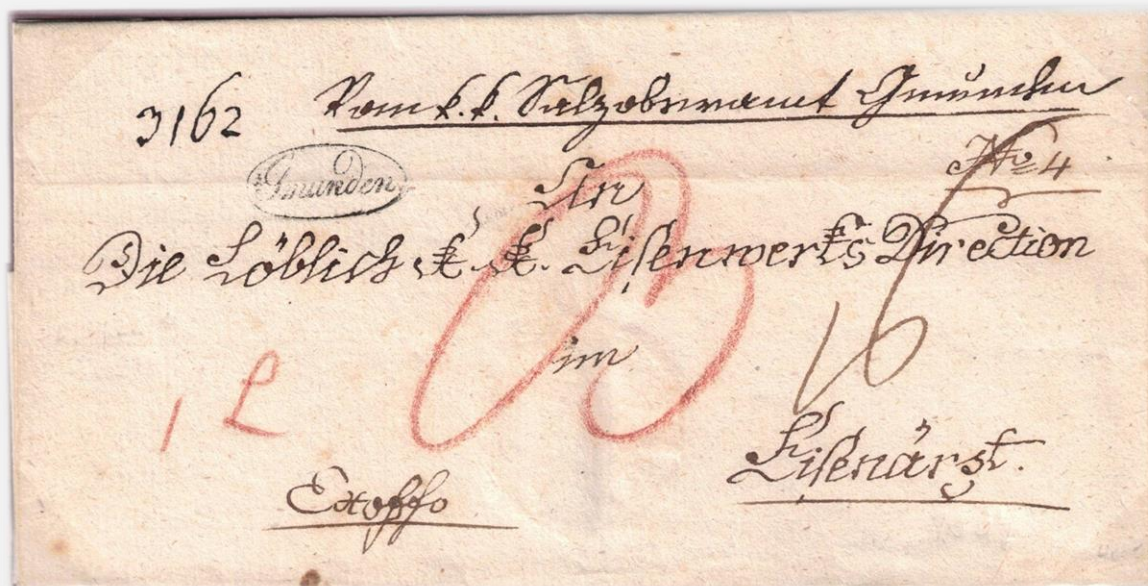 3162 Vom k. k. Salzoberamt Gmunden
Gmunden
No 4
An
Die Löblich k. k. Eisenwerks Direction
16
im
1 L
Eisenärzt.
Exoffo